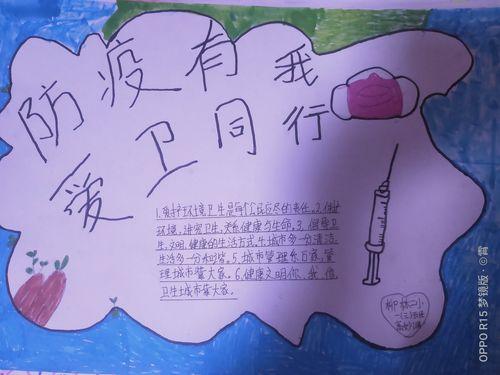 防疫有我
爱卫同行
1.爱护环境卫生是每个公民应尽的责任。2.保护
环境,讲究卫生,关系健康与生命。3.健康卫
生,文明,健康的生活方式。4.城市多一分清洁,
生活多一分和谐。5.城市管理系百家,管
理城市靠大家。6.健康文明你、我、他
卫生城市靠大家。
柳林二小
一(三)班
OPPO R15 梦镜版 · ©霄